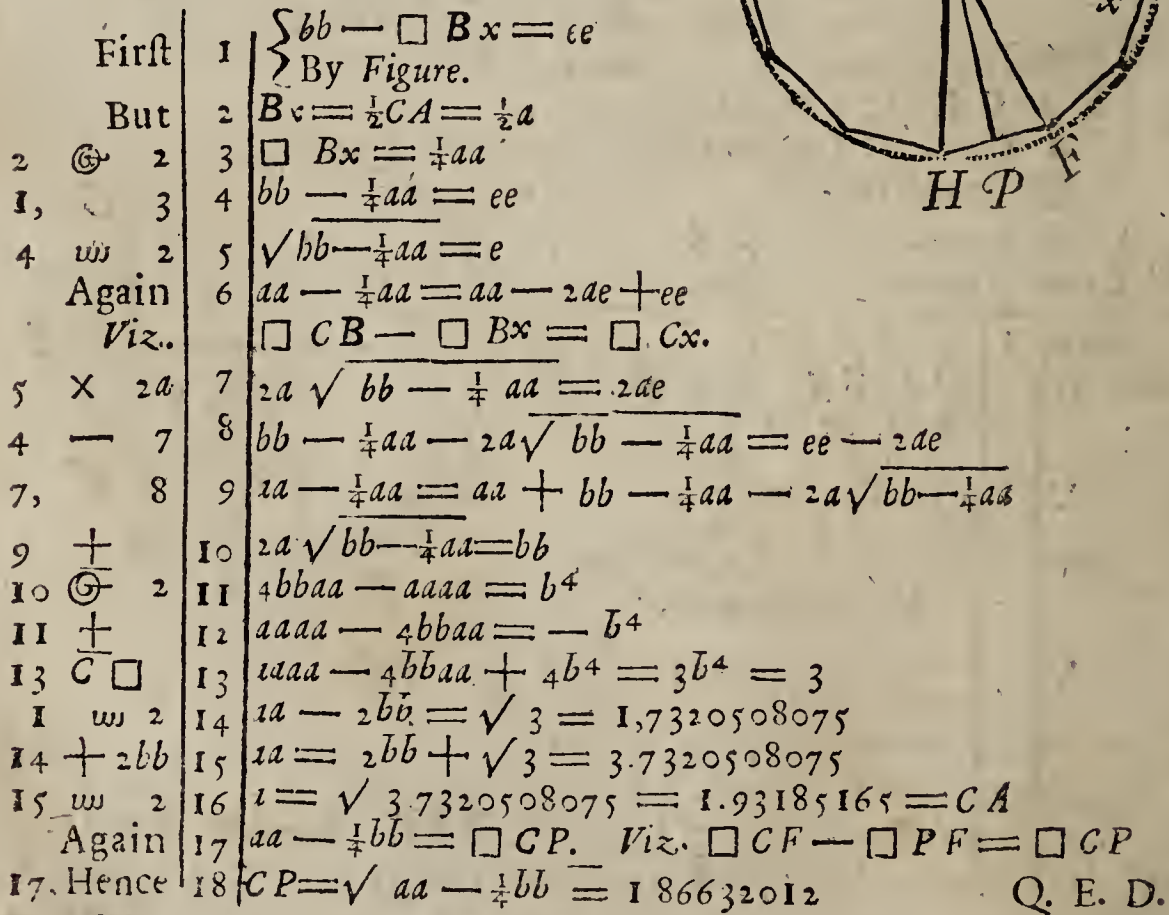 First | 1 | {bb — □ Bx = ee
By Figure.
But | 2 | Bx = ½CA = ½a
2 @ 2 | 3 | □ Bx = ¼aa
1, 3 | 4 | bb — ¼aa = ee
4 ɯ 2 | 5 | √bb—¼aa = e
Again | 6 | aa — ¼aa = aa — 2ae + ee
Viz. □ CB — □ Bx = □ Cx.
5 × 2a | 7 | 2a √ bb — ¼ aa = 2ae
4 — 7 | 8 | bb — ¼aa — 2a√ bb — ¼aa = ee — 2ae
7, 8 | 9 | aa — ¼aa = aa + bb — ¼aa — 2a√bb—¼aa
9 ± | 10 | 2a √bb—¼aa=bb
10 @ 2 | 11 | 4bbaa — aaaa = b⁴
11 ± | 12 | aaaa — 4bbaa = — b⁴
13 C □ | 13 | aaaa — 4bbaa + 4b⁴ = 3b⁴ = 3
1 ɯ 2 | 14 | aa — 2bb = √ 3 = 1,7320508075
14 + 2bb | 15 | aa = 2bb + √ 3 = 3.7320508075
15 ɯ 2 | 16 | a = √ 3.7320508075 = 1.93185165 = CA
Again | 17 | aa — ¼bb = □ CP. Viz. □ CF — □ PF = □ CP
17. Hence | 18 | CP=√ aa — ¼bb = 1 86632012 Q. E. D.
x
H P F